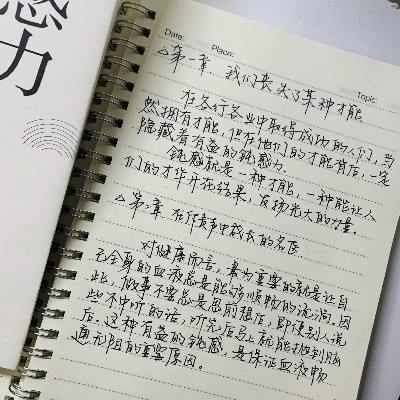 感
力
Date:
Place:
Topic:
△第一章. 我们丧失了某种才能
在各行各业中取得成功的人们,当
然拥有才能,但在他们的才能背后,一定
隐藏着有益的钝感力.
钝感就是一种才能,一种能让人
们的才华开花结果,发扬光大的力量.
△第2章 在斥责声中成长的名医
对健康而言,最为重要的就是让自
己全身的血液总是能够顺畅的流淌。因
此,做事不要总是思前想后,即使别人说
些不中听的话,听完后马上就能抛到脑
后.这种有益的钝感,是保证血液畅
通无阻的重要原因。